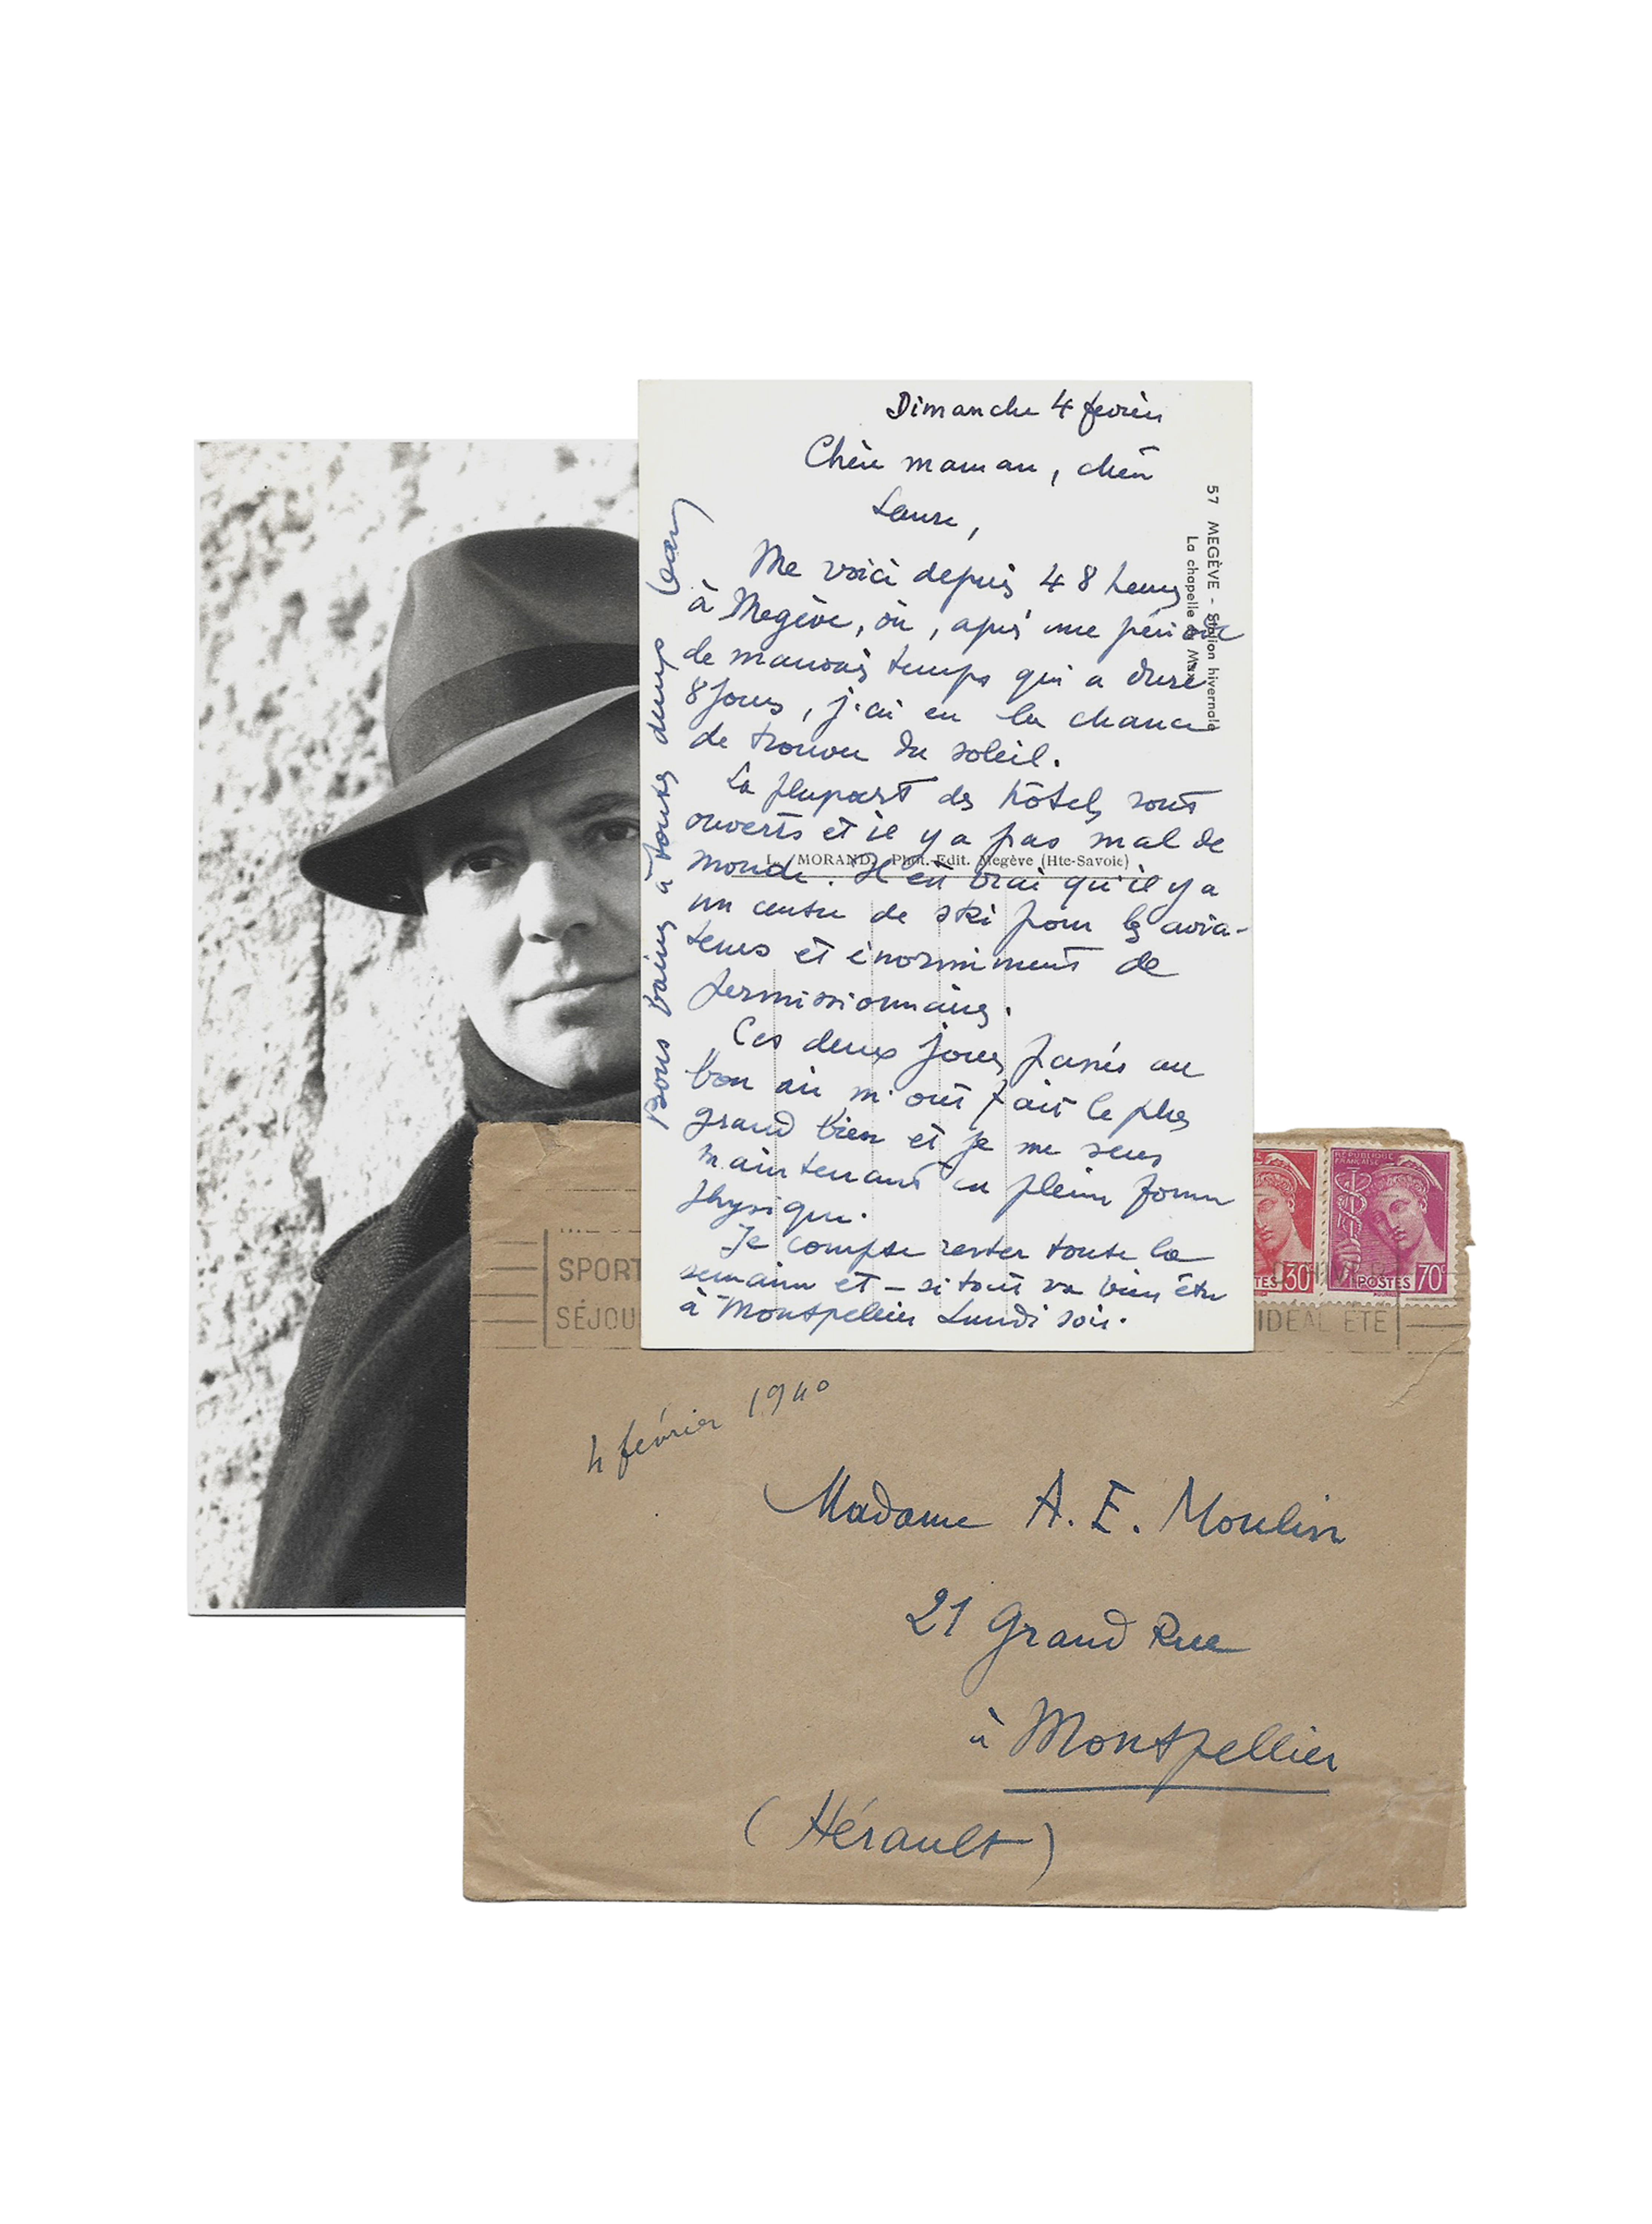 Dimanche 4 février
Chère maman, chère
Laure,
Me voici depuis 48 heures
à Megève, où, après une période
de mauvais temps qui a duré
8 jours, j'ai eu la chance
de trouver du soleil.
La plupart des hôtels sont
ouverts et il y a pas mal de
monde. Il est vrai qu'il y a
un centre de ski pour les avia-
teurs et énormément de
permissionnaires.
Ces deux jours passés au
bon air m'ont fait le plus
grand bien et je me sens
maintenant en pleine forme
physique.
Je compte rester toute la
semaine et – si tout va bien être
à Montpellier Lundi soir.
Bons baisers à toutes deux Jean
57 MEGÈVE - Station hivernale
La chapelle Max
L. MORAND, Phot. Edit. Megève (Hte-Savoie)
RÉPUBLIQUE
FRANÇAISE
TES 30
POSTES 70c
SPORT
SÉJOU
IDÉAL ÉTÉ
4 février 1940
Madame A. E. Moulin
21 Grand Rue
à Montpellier
(Hérault)